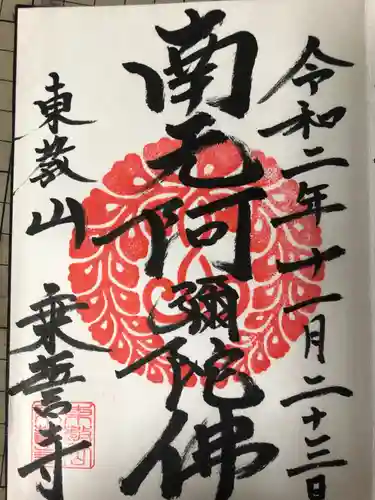 令和二年十一月二十三日
南无阿彌陀佛
東教山 乗誓寺